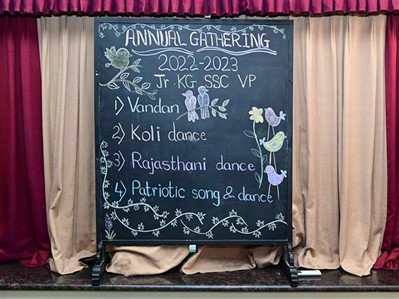 ANNUAL GATHERING
2022-2023
Jr KG SSC VP
1) Vandan
2) Koli dance
3) Rajasthani dance
4) Patriotic song & dance